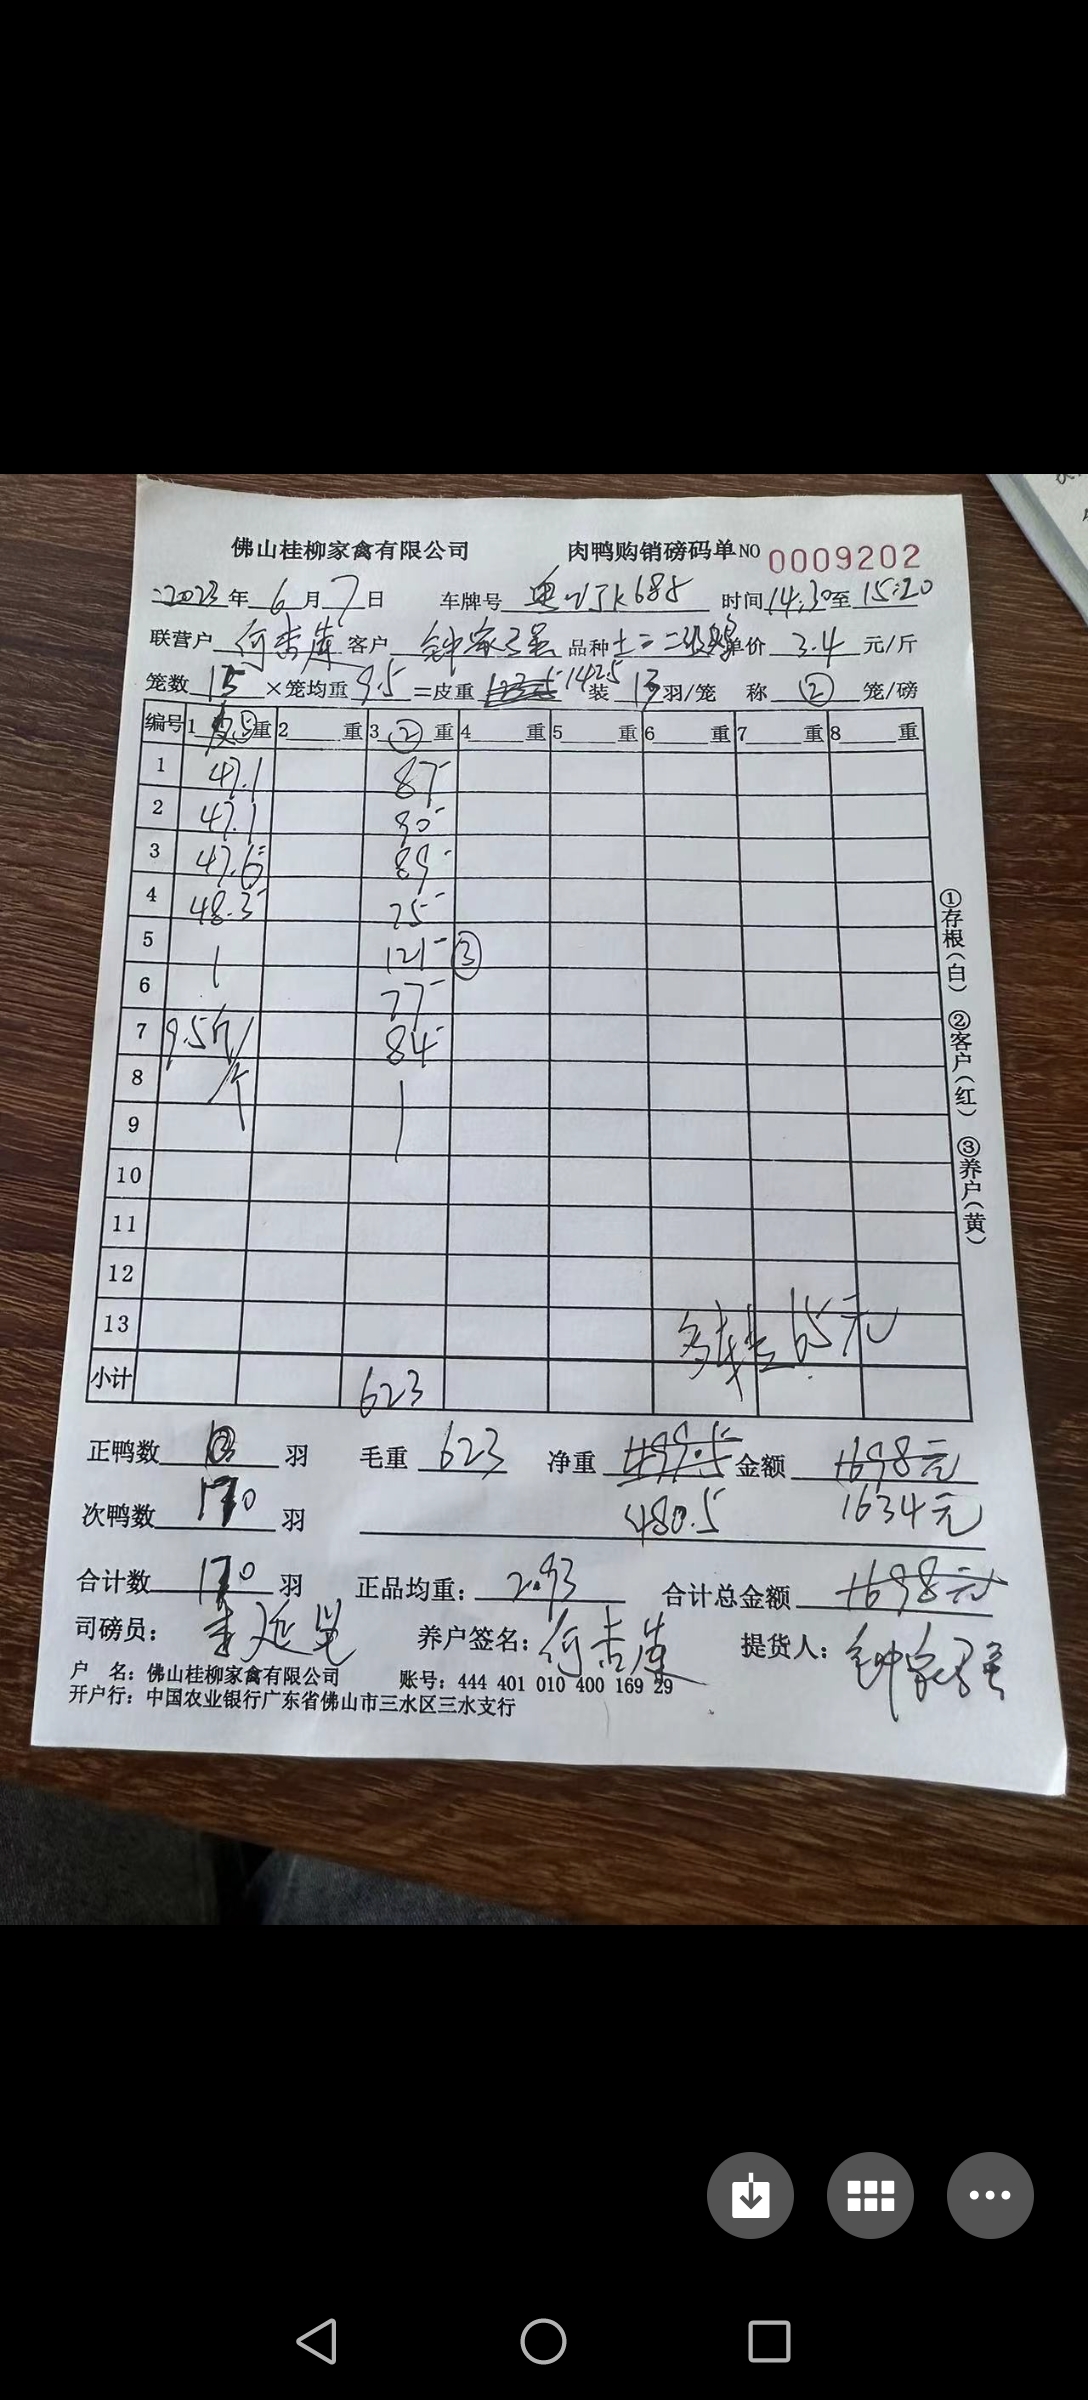 佛山桂柳家禽有限公司 肉鸭购销磅码单NO 0009202
2023年6月7日 车牌号 粤 JK685 时间14:30至15:20
联营户 何 莲 客户 钟家 品种 土二 二级 单价 3.4 元/斤
笼数 15 ×笼均重 9.5 =皮重 142.5 装 13 羽/笼 称 ② 笼/磅
编号 1 皮⑤重 2 重 3 ② 重 4 重 5 重 6 重 7 重 8 重
1 47.1 87
2 47.1 90
3 47.6 89
4 48.3 75
5 121 ③
6 77
7 9.5斤/ 84
8 个
9
10
11
12
13 65元
小计 623
正鸭数 羽 毛重 623 净重 499.5 金额 1698元
次鸭数 170 羽 480.5 1634元
合计数 170 羽 正品均重: 2.93 合计总金额 1698元
司磅员: 养户签名: 何 莲 提货人: 钟家
户 名: 佛山桂柳家禽有限公司 账号: 444 401 010 400 169 29
开户行: 中国农业银行广东省佛山市三水区三水支行
①存根(白) ②客户(红) ③养户(黄)